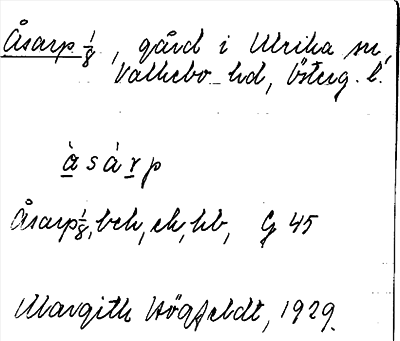 Åsarp 1/8, gård i Ulrika sn,
Valkebo hd, Österg. l.
å s á r p
Åsarp 1/8, bch, ek, hb, G 45
Margith Högfeldt, 1929.